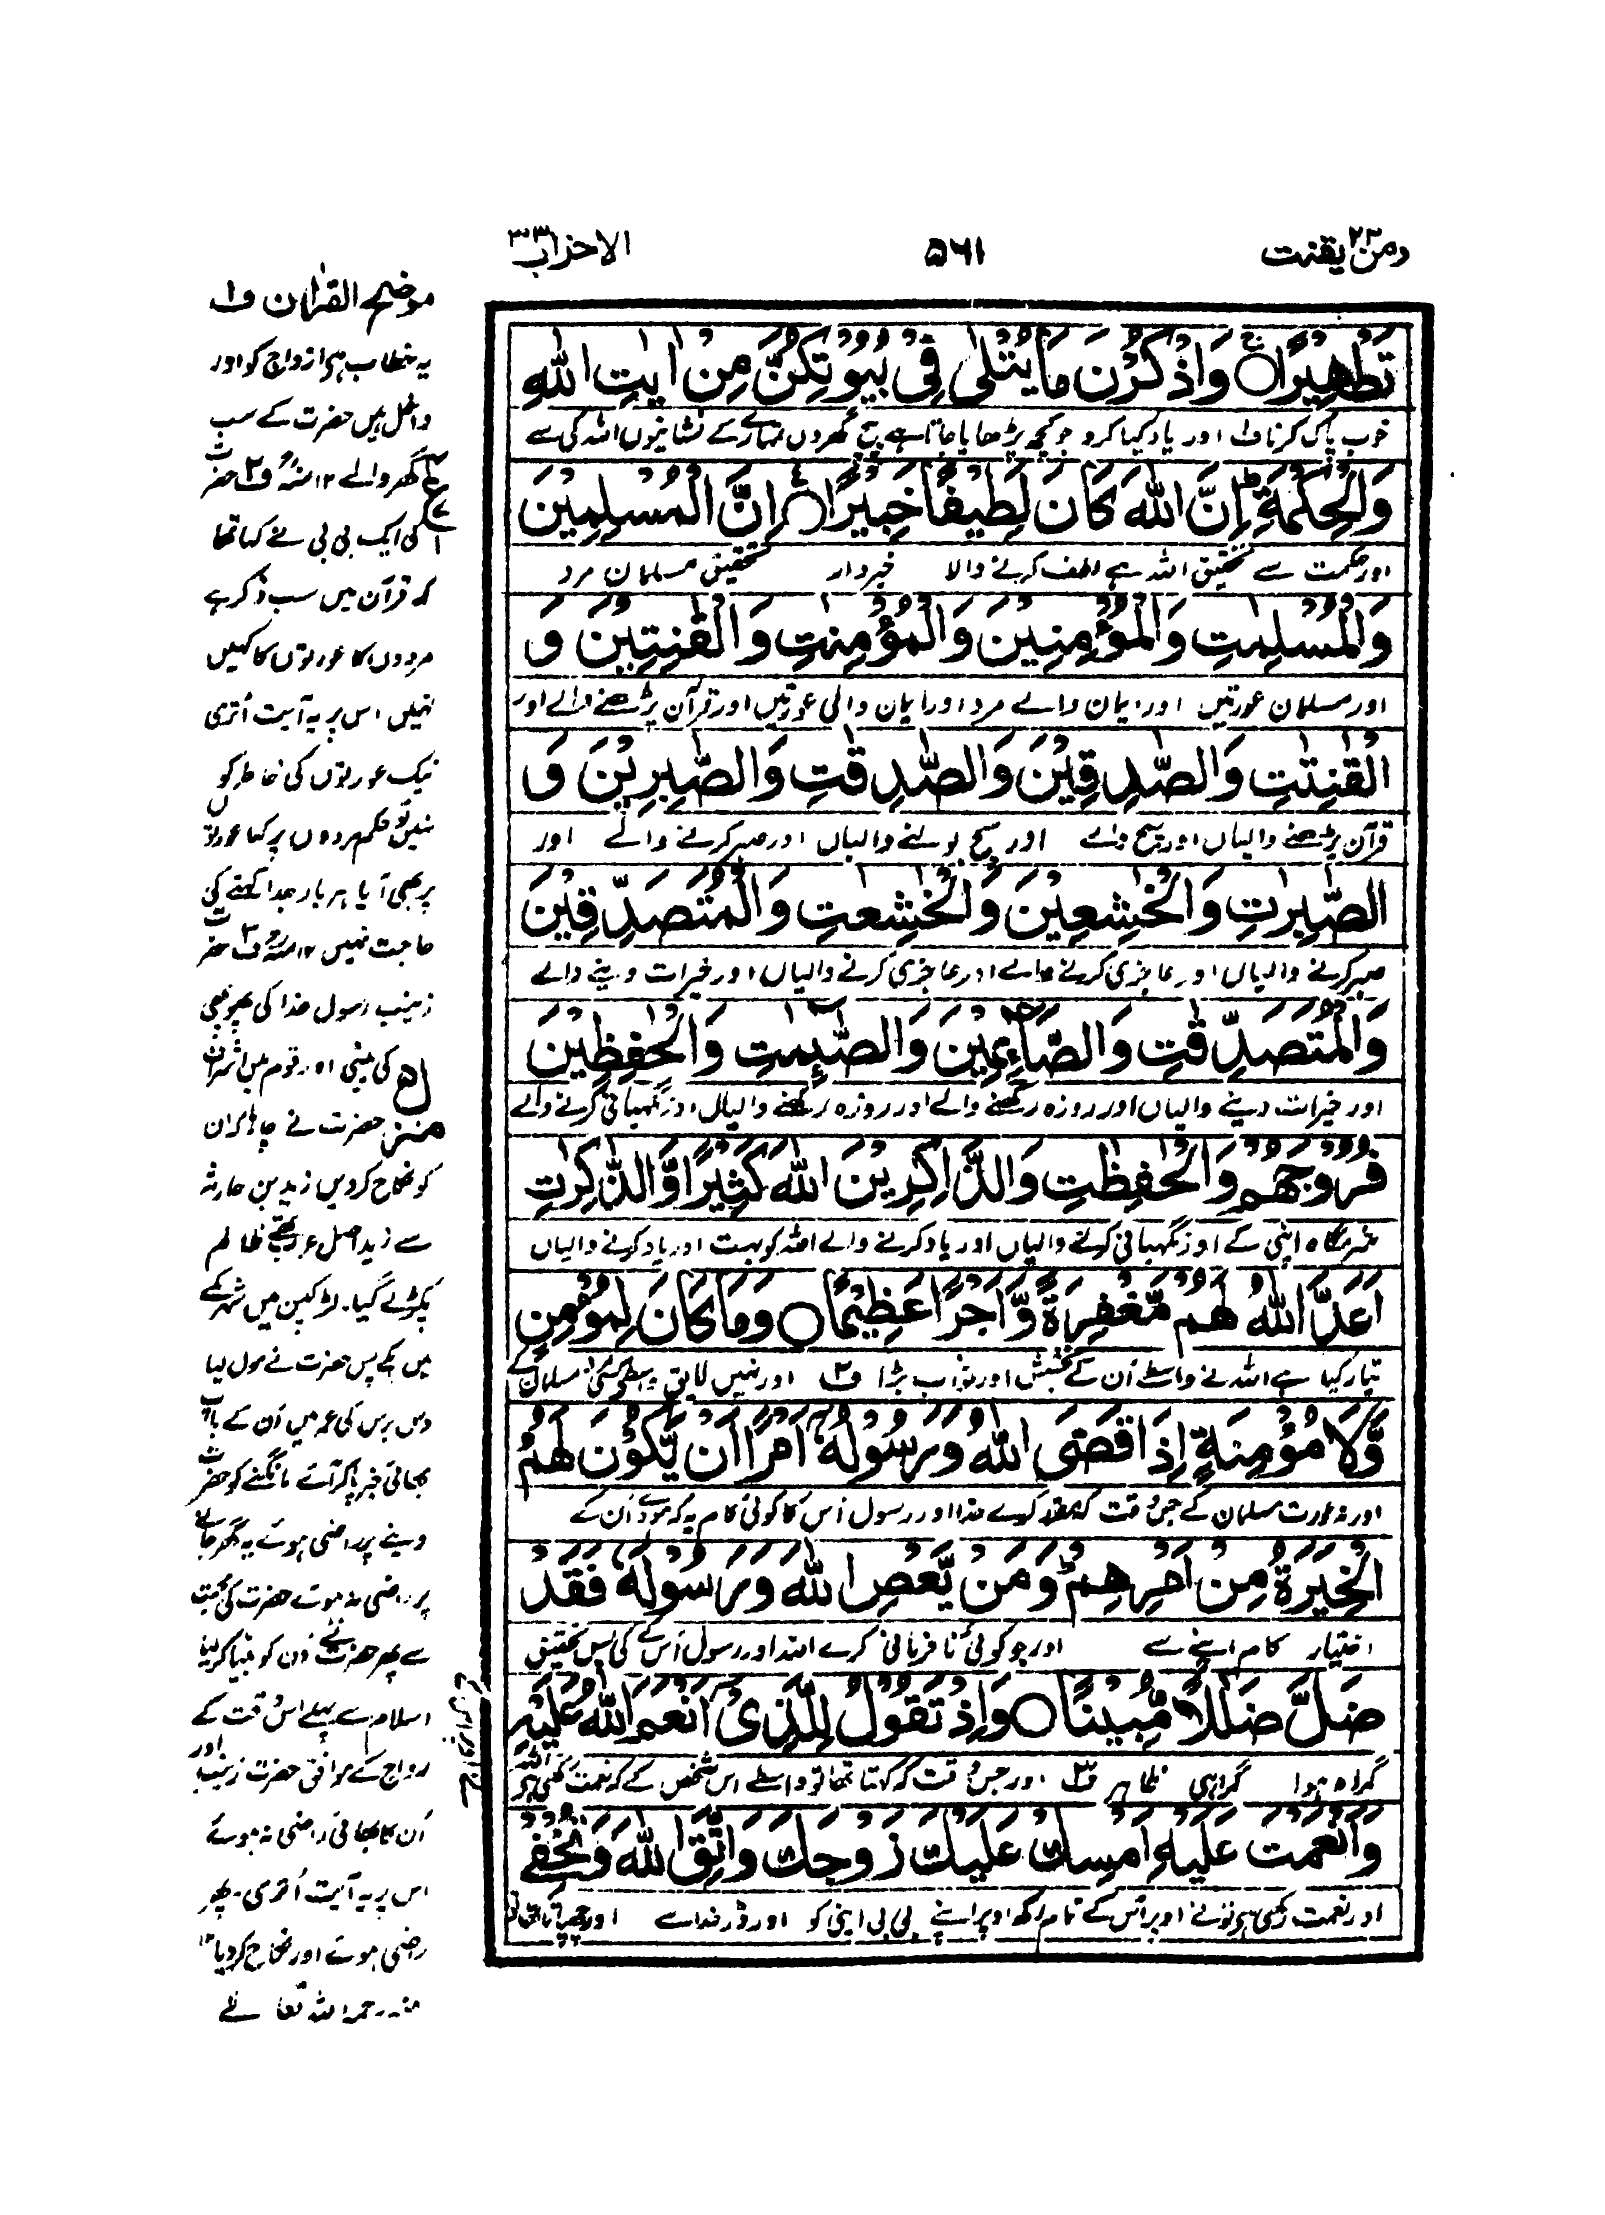 ومن یقنت ۲۲
۵۶۱
الاحزاب ۳۳
تَطْهِيْرًا ○ وَاذْكُرْنَ مَا يُتْلٰى فِيْ بُيُوْتِكُنَّ مِنْ اٰيٰتِ اللّٰهِ
خوب پاک کرنا ف۱ اور یاد کیا کرو جو کچھ پڑھا جاتا ہے بیچ گھروں تمہارے کے نشانیوں اللہ کی سے
وَالْحِكْمَةِ ؕ اِنَّ اللّٰهَ كَانَ لَطِيْفًا خَبِيْرًا ○ اِنَّ الْمُسْلِمِيْنَ
اور حکمت سے تحقیق اللہ ہے لطف کرنے والا خبردار تحقیق مسلمان مرد
وَالْمُسْلِمٰتِ وَالْمُؤْمِنِيْنَ وَالْمُؤْمِنٰتِ وَالْقٰنِتِيْنَ وَ
اور مسلمان عورتیں اور ایمان والے مرد اور ایمان والی عورتیں اور قرآن پڑھنے والے اور
الْقٰنِتٰتِ وَالصّٰدِقِيْنَ وَالصّٰدِقٰتِ وَالصّٰبِرِيْنَ وَ
قرآن پڑھنے والیاں اور سچ والے اور سچ بولنے والیاں اور صبر کرنے والے اور
الصّٰبِرٰتِ وَالْخٰشِعِيْنَ وَالْخٰشِعٰتِ وَالْمُتَصَدِّقِيْنَ
صبر کرنے والیاں اور عاجزی کرنے والے اور عاجزی کرنے والیاں اور خیرات دینے والے
وَالْمُتَصَدِّقٰتِ وَالصَّآىِٕمِيْنَ وَالصّٰٓىِٕمٰتِ وَالْحٰفِظِيْنَ
اور خیرات دینے والیاں اور روزہ رکھنے والے اور روزہ رکھنے والیاں اور نگہبانی کرنے والے
فُرُوْجَهُمْ وَالْحٰفِظٰتِ وَالذّٰكِرِيْنَ اللّٰهَ كَثِيْرًا وَّالذّٰكِرٰتِ
شرمگاہ اپنی کے اور نگہبانی کرنے والیاں اور یاد کرنے والے اللہ کو بہت اور یاد کرنے والیاں
اَعَدَّ اللّٰهُ لَهُمْ مَّغْفِرَةً وَّاَجْرًا عَظِيْمًا ○ وَمَا كَانَ لِمُؤْمِنٍ
تیار کیا ہے اللہ نے واسطے اُن کے بخشش اور ثواب بڑا ف۲ اور نہیں لائق واسطے کسی مسلمان کے
وَّلَا مُؤْمِنَةٍ اِذَا قَضَى اللّٰهُ وَرَسُوْلُهٗٓ اَمْرًا اَنْ يَّكُوْنَ لَهُمُ
اور نہ عورت مسلمان کے جس وقت کہ مقرر کرے خدا اور رسول اُس کا کوئی کام یہ کہ ہووے اُن کے
الْخِيَرَةُ مِنْ اَمْرِهِمْ ؕ وَمَنْ يَّعْصِ اللّٰهَ وَرَسُوْلَهٗ فَقَدْ
اختیار کام اپنے سے اور جو کوئی نافرمانی کرے اللہ اور رسول اُس کے کی پس تحقیق
ضَلَّ ضَلٰلًا مُّبِيْنًا ○ وَاِذْ تَقُوْلُ لِلَّذِيْٓ اَنْعَمَ اللّٰهُ عَلَيْهِ
گمراہ ہوا گمراہی ظاہر ف۳ اور جس وقت کہ کہتا تھا تو واسطے اس شخص کے کہ نعمت رکھی ہے اللہ
وَاَنْعَمْتَ عَلَيْهِ اَمْسِكْ عَلَيْكَ زَوْجَكَ وَاتَّقِ اللّٰهَ وَتُخْفِيْ
اور نعمت رکھی ہے تو نے اوپر اُس کے تھام رکھ اوپر اپنے بی بی اپنی کو اور ڈر خدا سے اور چھپاتا تھا تو
موضح القرآن ف۱
یہ خطاب ہے ازواج کو اور
داخل ہیں حضرت کے سب
گھر والے ۱۲ منہ ف۲ حضرت
کی ایک بی بی نے کہا تھا
کہ قرآن میں سب ذکر ہے
مردوں کا عورتوں کا کہیں
نہیں اس پر یہ آیت اُتری
نیک عورتوں کی خاطر کو
نہیں تو حکم مردوں پر کہا عورتوں
پر بھی آیا ہر بار جدا کہنے کی
حاجت نہیں ۱۲ منہ ف۳ حضرت
زینب رسول خدا کی پھوپھی
کی بیٹی اور قوم میں اشراف
منزل ۵
حضرت نے چاہا کہ ان
کو نکاح کر دیں زید بن حارثہ
سے زید اصل عرب تھے ظالم
پکڑ لے گیا۔ لڑکپن میں شہر مکے
میں بکے پس حضرت نے مول لیا
دس برس کی عمر میں اُن کے باپ
بھائی خبر پاکر آئے مانگنے کو حضرت
دینے پر راضی ہوئے یہ گھر جانے
پر راضی نہ ہوئے حضرت کی محبت
سے پھر حضرت نے ان کو بیٹا کر لیا
اسلام سے پہلے اس وقت کے
رواج کے موافق حضرت زینب اور
اُن کا بھائی راضی نہ ہوئے
اس پر یہ آیت اُتری۔ پھر
راضی ہوئے اور نکاح کر دیا ۱۲
منہ رحمہ اللہ تعالےٰ